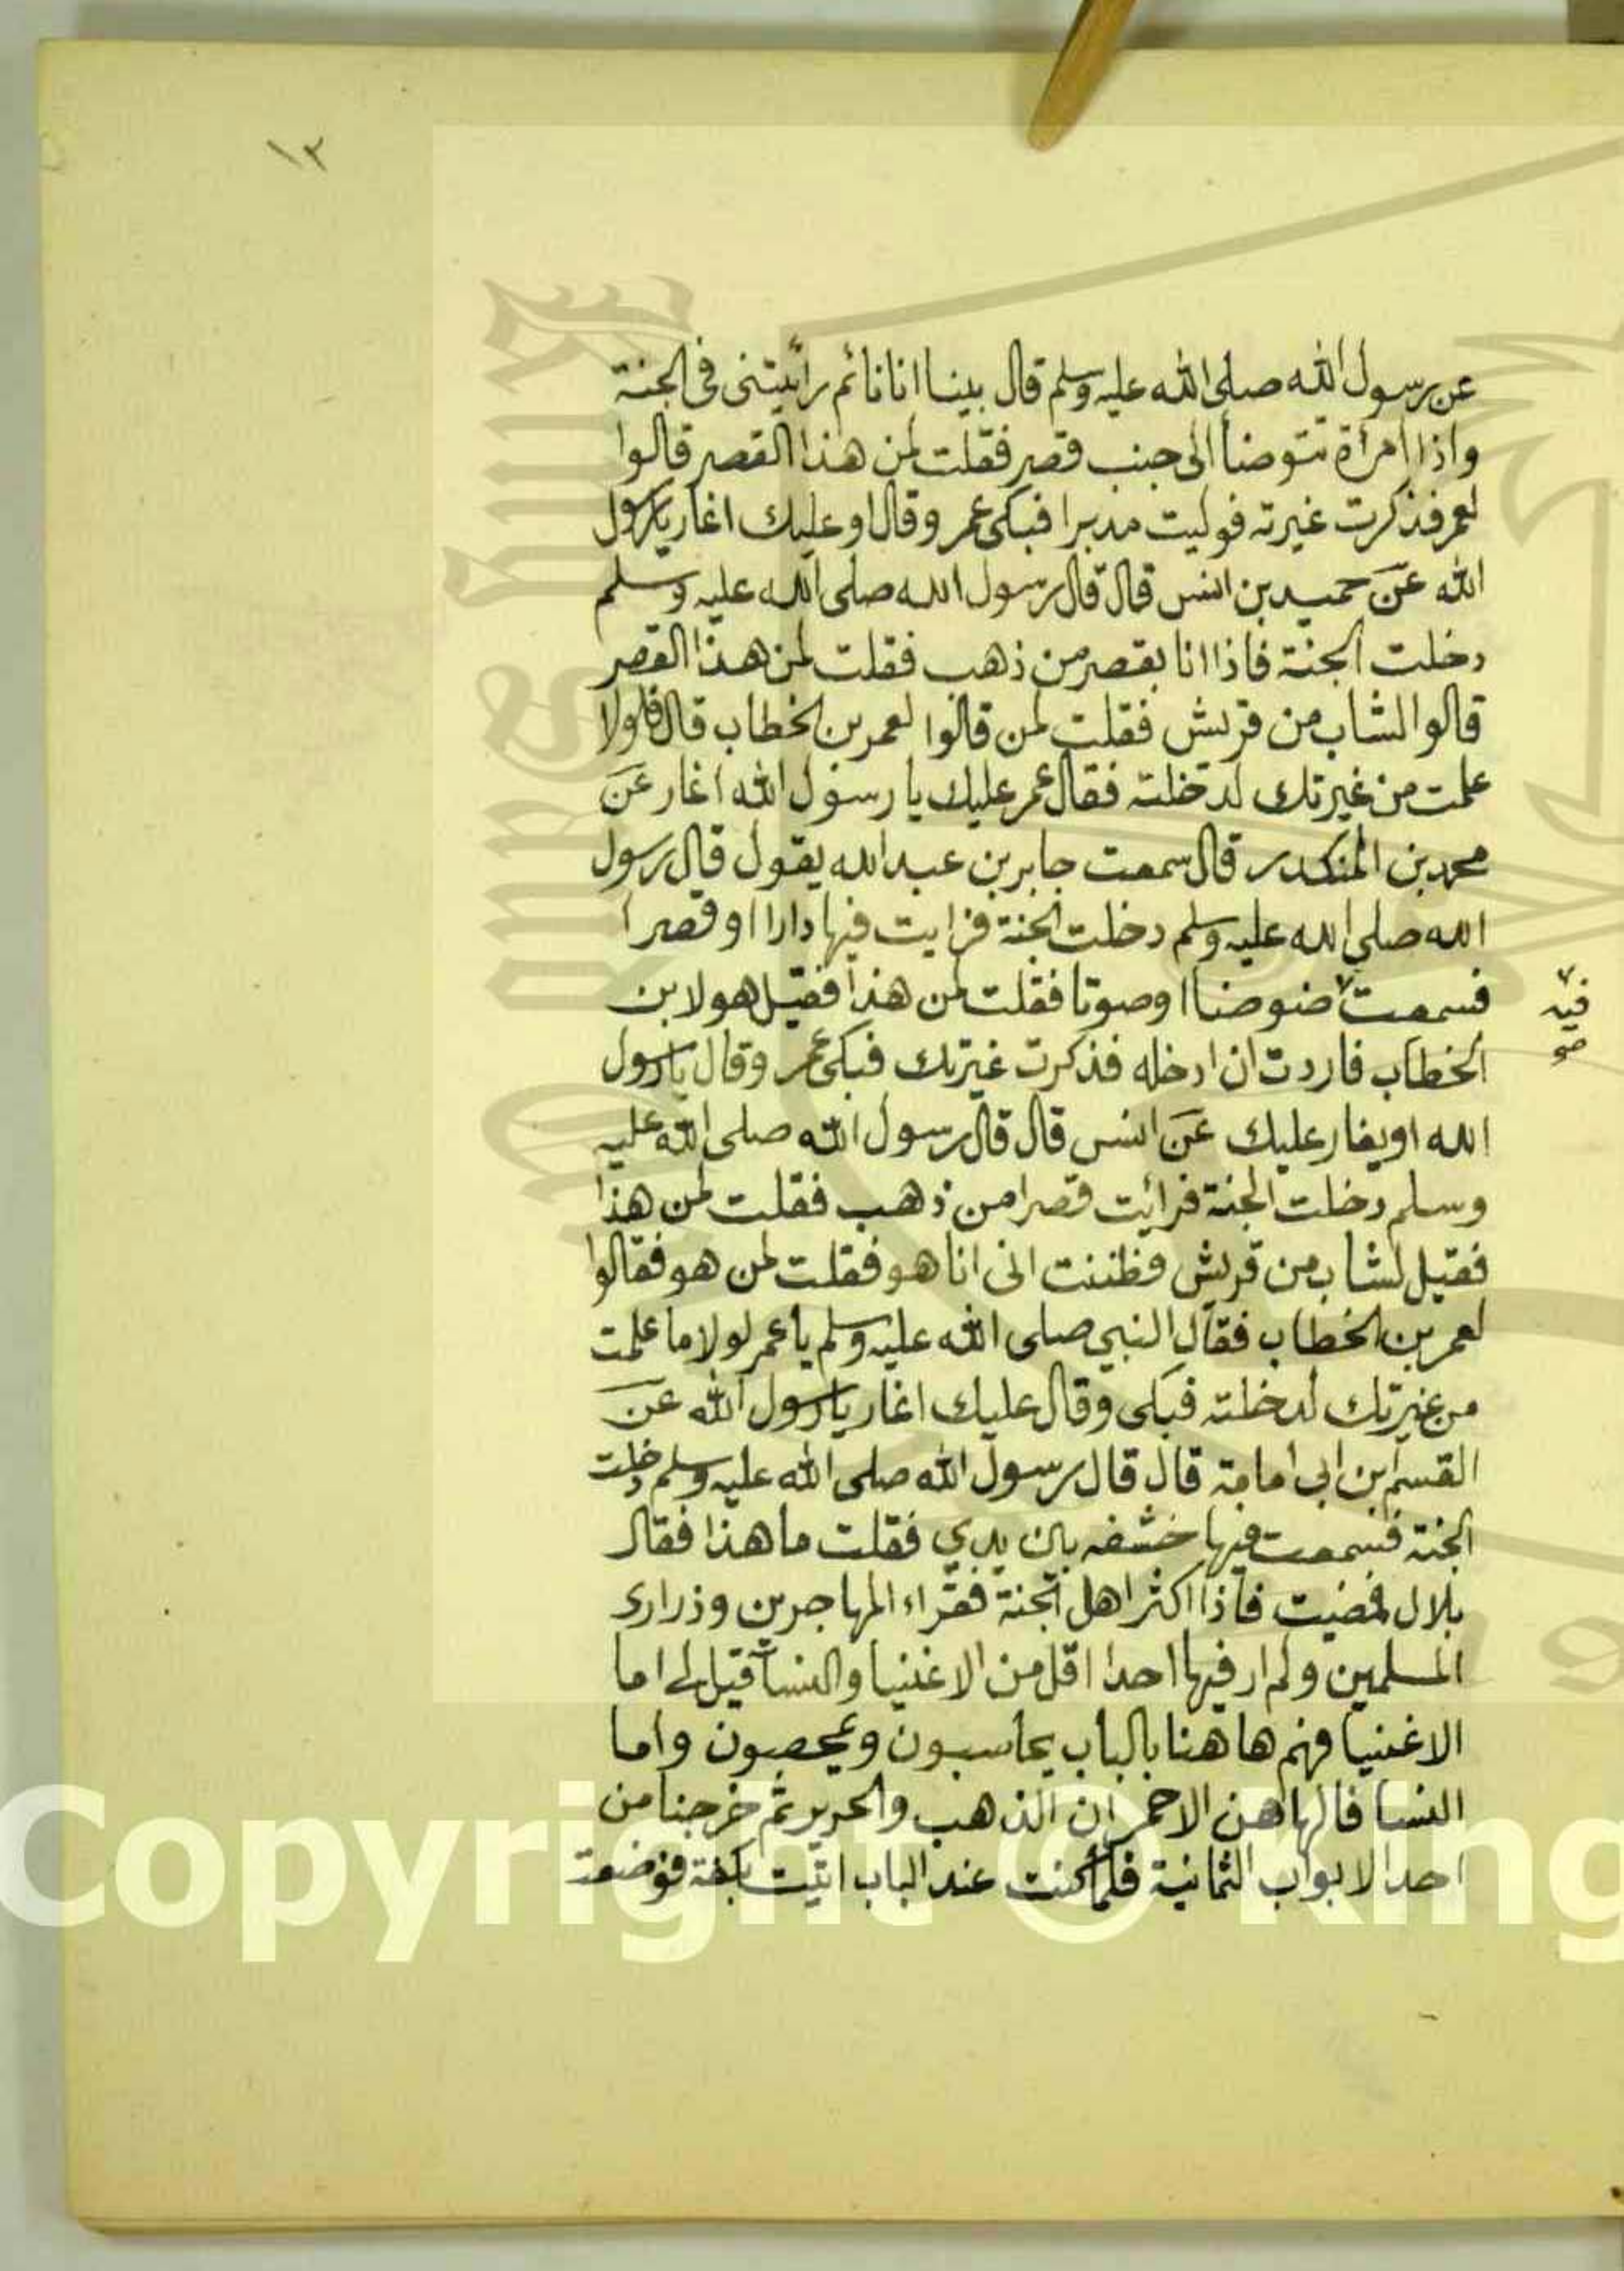 ١٣
عن رسول الله صلى الله عليه وسلم قال بينا انا نائم رأيتنى فى الجنة
واذا امرأة تتوضأ الى جنب قصر فقلت لمن هذا القصر قالوا
لعمر فذكرت غيرته فوليت مدبرا فبكى عمر وقال او عليك اغار يا رسول
الله عن حميد بن انس قال قال رسول الله صلى الله عليه وسلم
دخلت الجنة فاذا انا بقصر من ذهب فقلت لمن هذا القصر
قالوا لشاب من قريش فقلت لمن قالوا لعمر بن الخطاب قال فلولا
علمت من غيرتك لدخلته فقال عمر عليك يا رسول الله اغار عن
محمد بن المنكدر قال سمعت جابر بن عبد الله يقول قال رسول
الله صلى الله عليه وسلم دخلت الجنة فرايت فيها دارا او قصرا
فسمعت ضوضاا وصوتا فقلت لمن هذا فقيل هو لابن
فيه
الخطاب فاردت ان ادخله فذكرت غيرتك فبكى عمر وقال يا رسول
الله او يغار عليك عن انس قال قال رسول الله صلى الله عليه
وسلم دخلت الجنة فرائت قصرا من ذهب فقلت لمن هذا
فقيل لشاب من قريش فظننت انى انا هو فقلت لمن هو فقالوا
لعمر بن الخطاب فقال النبي صلى الله عليه وسلم يا عمر لولا ما علمت
من غيرتك لدخلته فبكى وقال عليك اغار يا رسول الله عن
القسم بن ابى امامة قال قال رسول الله صلى الله عليه وسلم دخلت
الجنة فسمعت فيها خشفه بين يدي فقلت ما هذا فقال
بلال فمضيت فاذا اكثر اهل الجنة فقراء المهاجرين وذرارى
المسلمين ولم ار فيها احدا اقل من الاغنيا والنسآ قيل لى اما
الاغنيا فهم ها هنا بالباب يحاسبون ويمحصون واما
النسا فالهاهن الاحمران الذهب والحرير ثم خرجنا من
احد الابواب الثمانية فلما كنت عند الباب اتيت بكفة فوضعت
Copyright © King